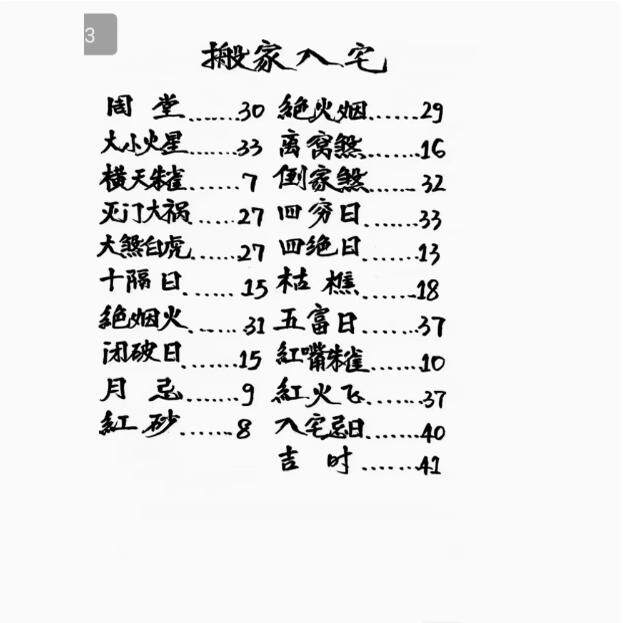 3
搬家入宅
周堂……30 絕火烟……29
大小火星……33 离窝煞……16
横天朱雀……7 倒家煞……32
灭门大祸……27 四穷日……33
大煞白虎……27 四绝日……13
十隔日……15 枯樵……18
絕烟火……31 五富日……37
闭破日……15 紅嘴朱雀……10
月忌……9 紅火飞……37
紅砂……8 入宅忌日……40
吉时……41